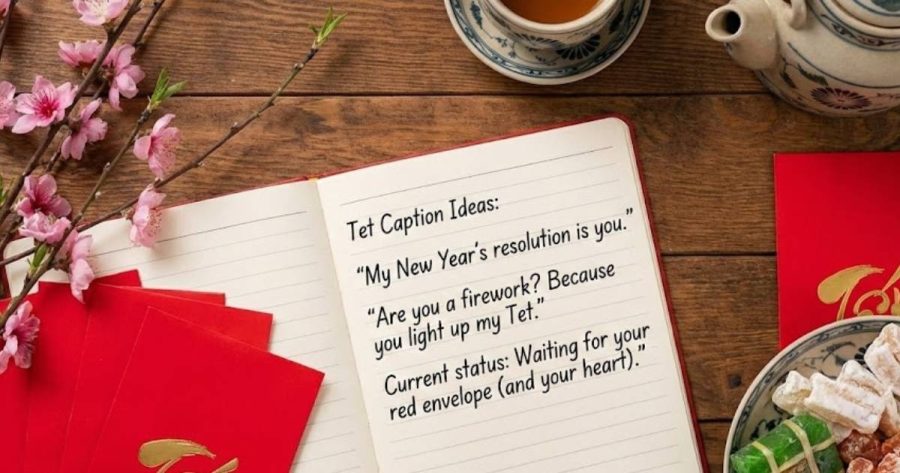 Tet Caption Ideas:
“My New Year's resolution is you.”
“Are you a firework? Because
you light up my Tet.”
Current status: Waiting for your
red envelope (and your heart).”